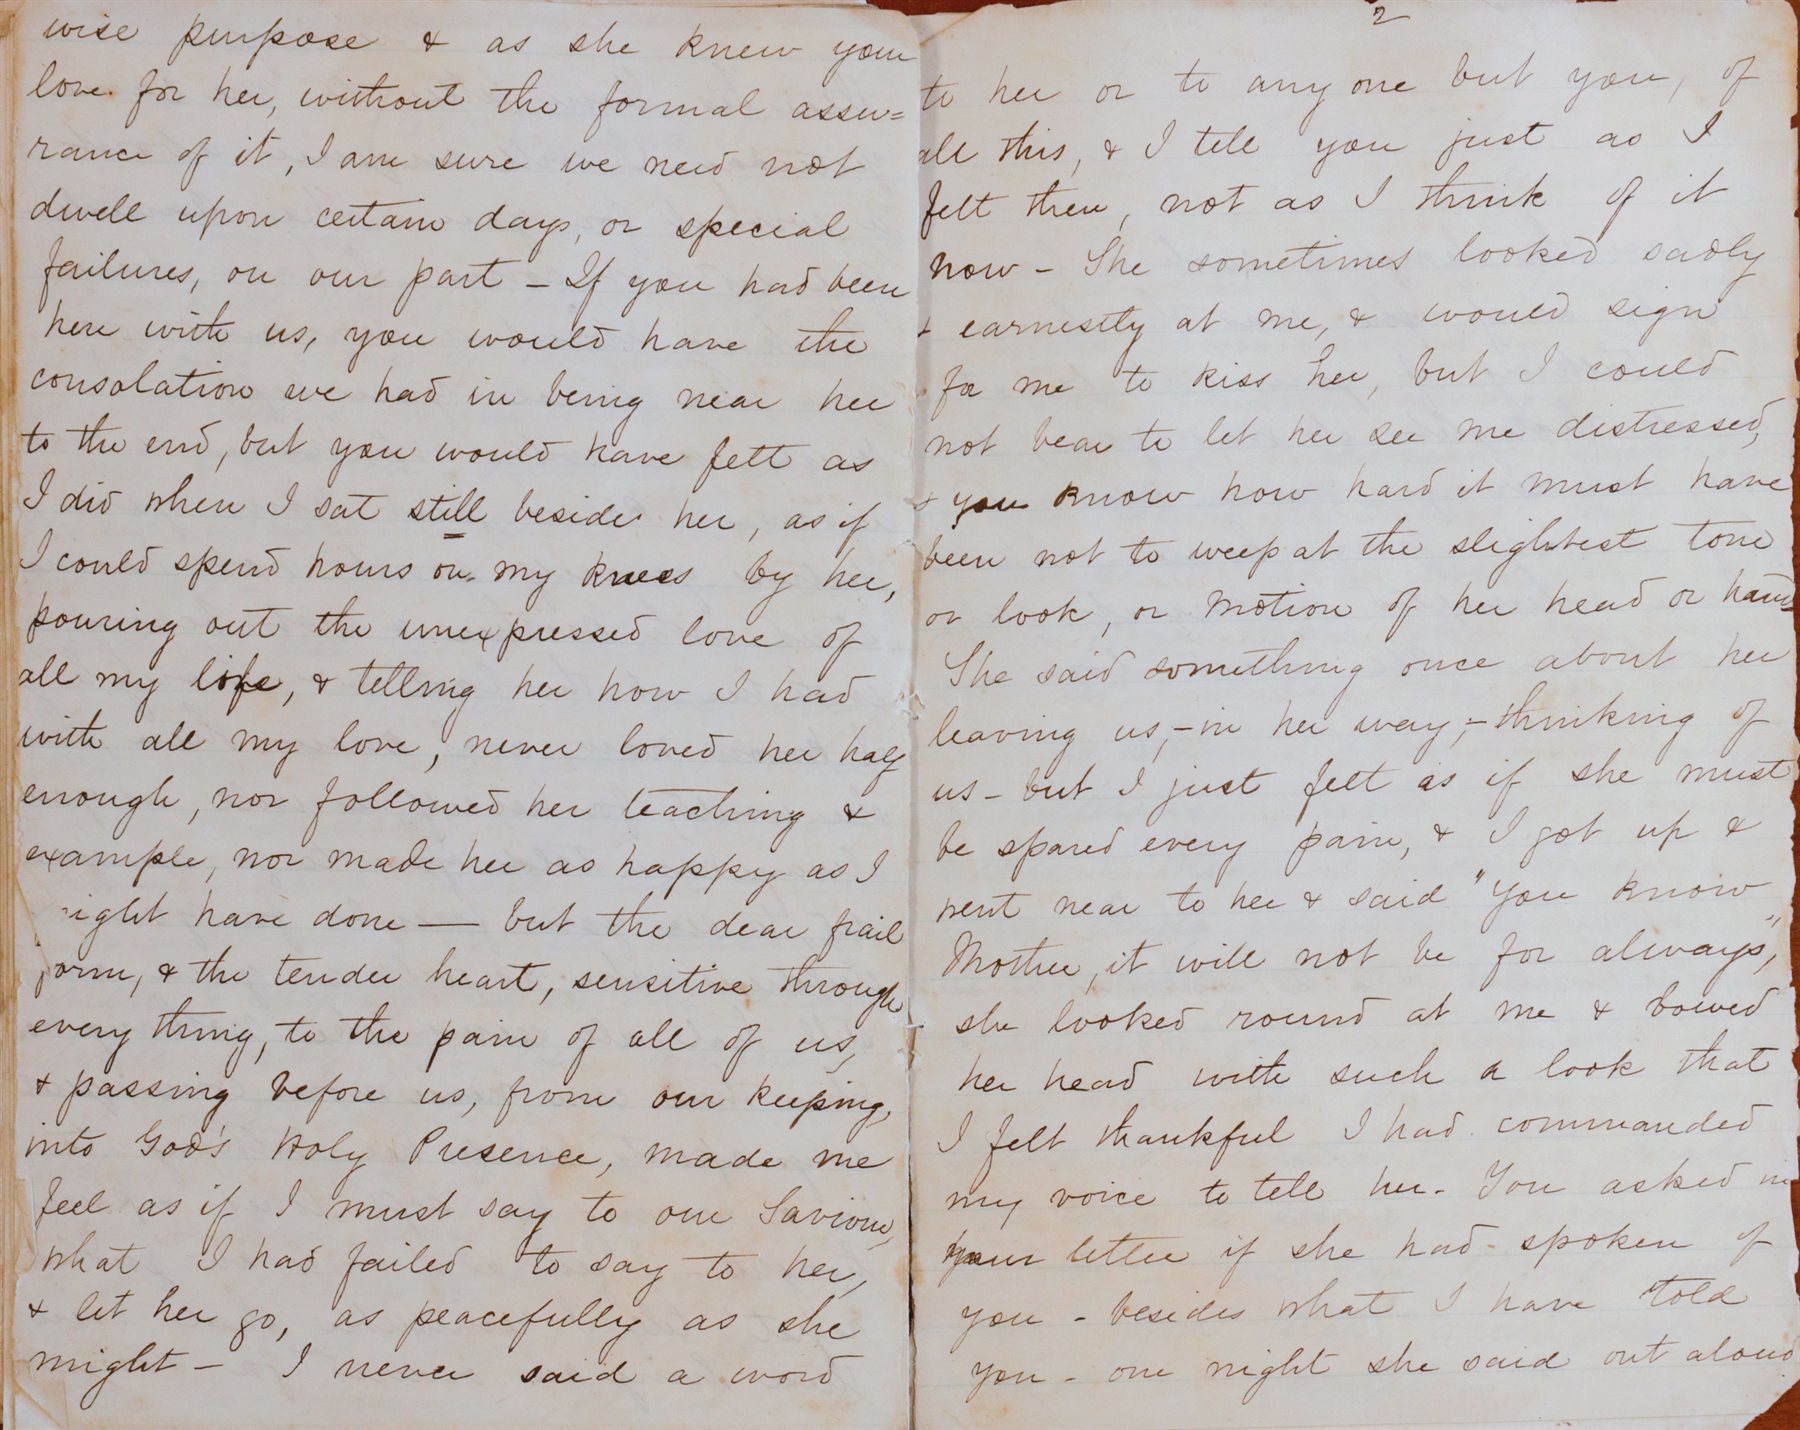 wise purpose & as she knew your
love for her, without the formal assu=
rance of it, I am sure we need not
dwell upon certain days, or special
failures, on our part - If you had been
here with us, you would have the
consolation we had in being near her
to the end, but you would have felt as
I did when I sat still beside her, as if
I could spend hours on my knees by her,
pouring out the unexpressed love of
all my life, & telling her how I had
with all my love, never loved her half
enough, nor followed her teaching &
example, nor made her as happy as I
might have done — but the dear frail
form, & the tender heart, sensitive through
every thing, to the pain of all of us,
& passing before us, from our keeping,
into God's Holy Presence, made me
feel as if I must say to our Saviour,
what I had failed to say to her,
& let her go, as peacefully as she
might - I never said a word
2
to her or to any one but you, of
all this, & I tell you just as I
felt then, not as I think of it
now - She sometimes looked sadly
& earnestly at me, & would sign
for me to kiss her, but I could
not bear to let her see me distressed,
& you know how hard it must have
been not to weep at the slightest tone
or look, or motion of her head or hand
She said something once about her
leaving us, - in her way, - thinking of
us - but I just felt as if she must
be spared every pain, & I got up &
went near to her & said "You know
Mother, it will not be for always,"
she looked round at me & bowed
her head with such a look that
I felt thankful I had commanded
my voice to tell her. You asked in
your letter if she had spoken of
you - besides what I have told
you - one night she said out aloud